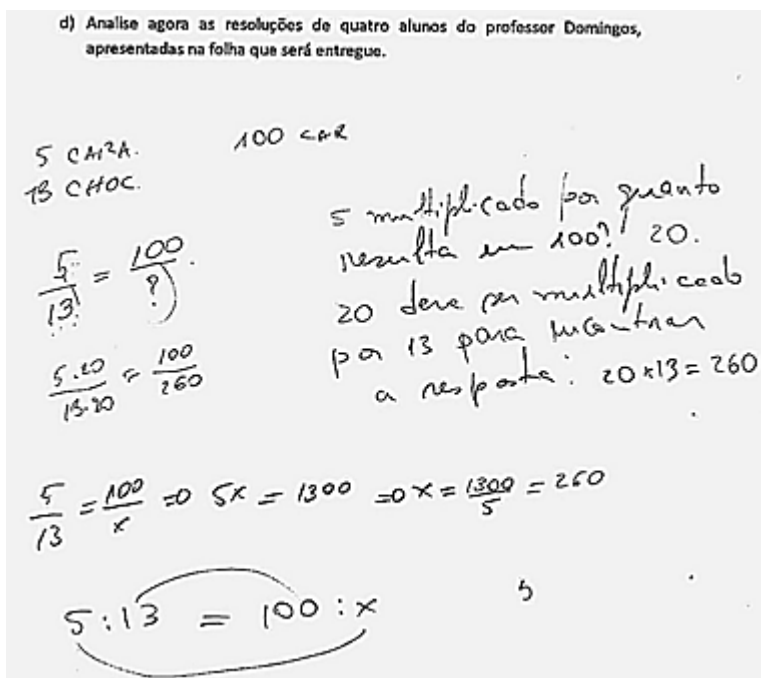 d) Analise agora as resoluções de quatro alunos do professor Domingos,
apresentadas na folha que será entregue.
5 CARA. 100 CAR
13 CHOC.
5/13 = 100/?
5.20/13.20 = 100/260
5 multiplicado por quanto
resulta em 100? 20.
20 deve ser multiplicado
por 13 para encontrar
a resposta: 20x13 = 260
5/13 = 100/x => 5x = 1300 => x = 1300/5 = 260
5:13 = 100:x
5